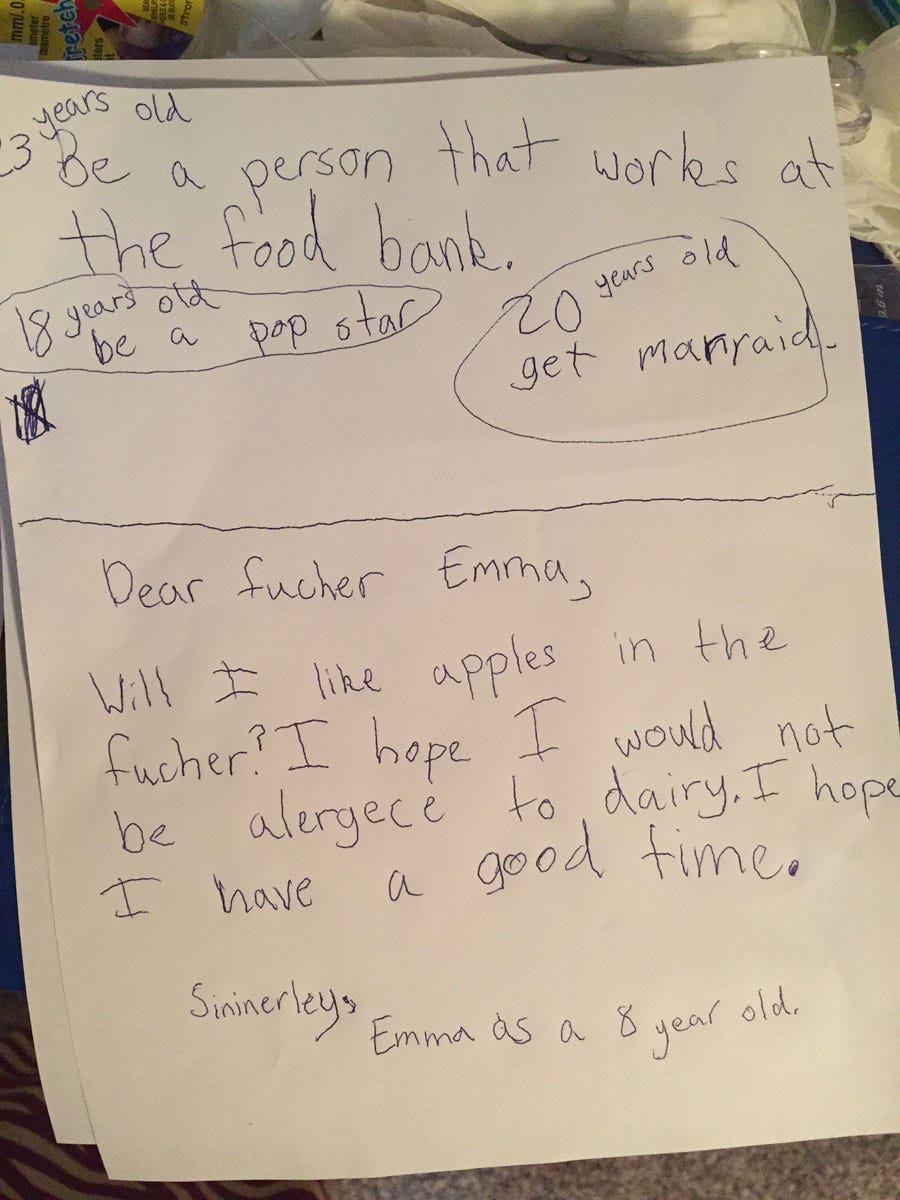 mm/.0
retch
years old
3 Be a person that works at
the food bank.
18 years old
be a pop star
20 years old
get manraid.
Dear fucher Emma,
Will I like apples in the
fucher? I hope I would not
be alergece to dairy. I hope
I have a good time.
Sininerley,
Emma as a 8 year old.